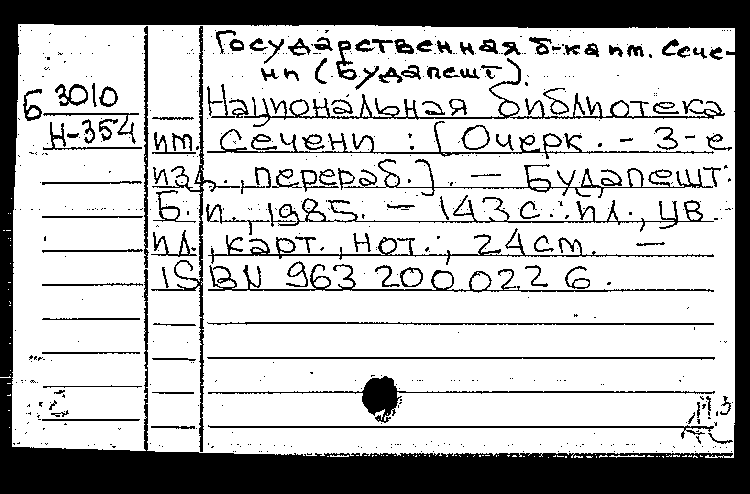 Государственная б-ка им. Сече-
ни (Будапешт).
Б 3010
Н-354
Национальная библиотека
им. Сечени : [Очерк. - 3-е
изд., перераб.]. — Будапешт:
Б. и., 1985. — 143 с.: ил., цв.
ил., карт., нот.; 24 см. —
ISBN 963 200 022 6.